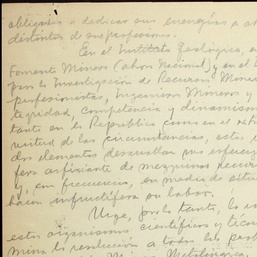 obligados a dedicar sus energías a ot
distintos de sus profesiones.
En el Instituto Geológico, en
Fomento Minero (ahora Nacional) y en el
para la Investigación de Recursos Mine
profesionistas, Ingenieros Mineros y
tegridad, competencia y dinamismo
tanto en la República como en el
virtud de las circunstancias, esta
dos elementos desarrollan sus esfuerzo
fera asfixiante de mezquinos recur
y, con frecuencia, en medio de
hacen infructífera su labor.
Urge, por lo tanto,
estos organismos científicos y técni
mino la resolución a todos los